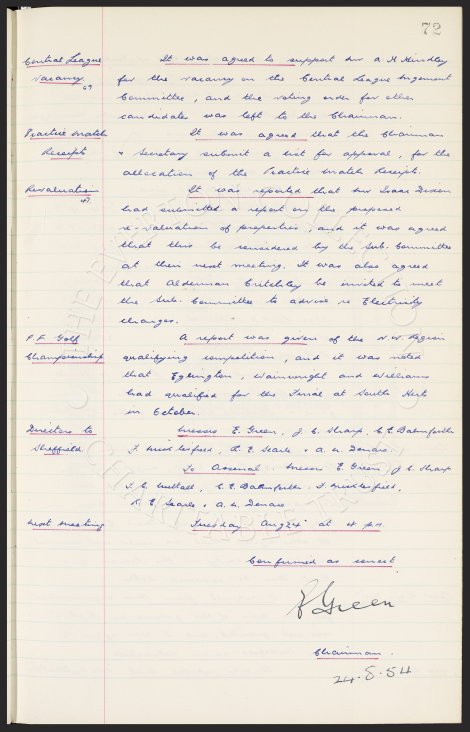 72
Central League It was agreed to support Mr A H Hindley
Vacancy for the vacancy on the Central League Management
Committee, and the voting order for other
candidates was left to the Chairman.
Practice Match It was agreed that the Chairman
Receipts & Secretary submit a list for approval, for the
allocation of the Practice Match Receipts.
Revaluation It was reported that Mr Isaac Dixon
had submitted a report on the proposed
re-valuation of properties, and it was agreed
that this be considered by the Sub. Committee
at their next meeting. It was also agreed
that Alderman Critchley be invited to meet
the Sub. Committee to advise re Electricity
charges.
P.F. Golf A report was given of the N.W. Region
Championship qualifying competition, and it was noted
that Eglington, Wainwright and Williams
had qualified for the Final at South Herts
in October.
Directors to Messrs E. Green, J. C. Sharp, C. E. Balmforth
Sheffield. F. Micklesfield, R. E. Searle & A. W. Denaro.
To Arsenal: Messrs E. Green, J. C. Sharp
T. C. Nuttall, C. E. Balmforth. F. Micklesfield,
R. E. Searle & A. W. Denaro
Next Meeting Tuesday Aug 24 at 4 pm
Confirmed as correct
E Green
Chairman.
24-8-54